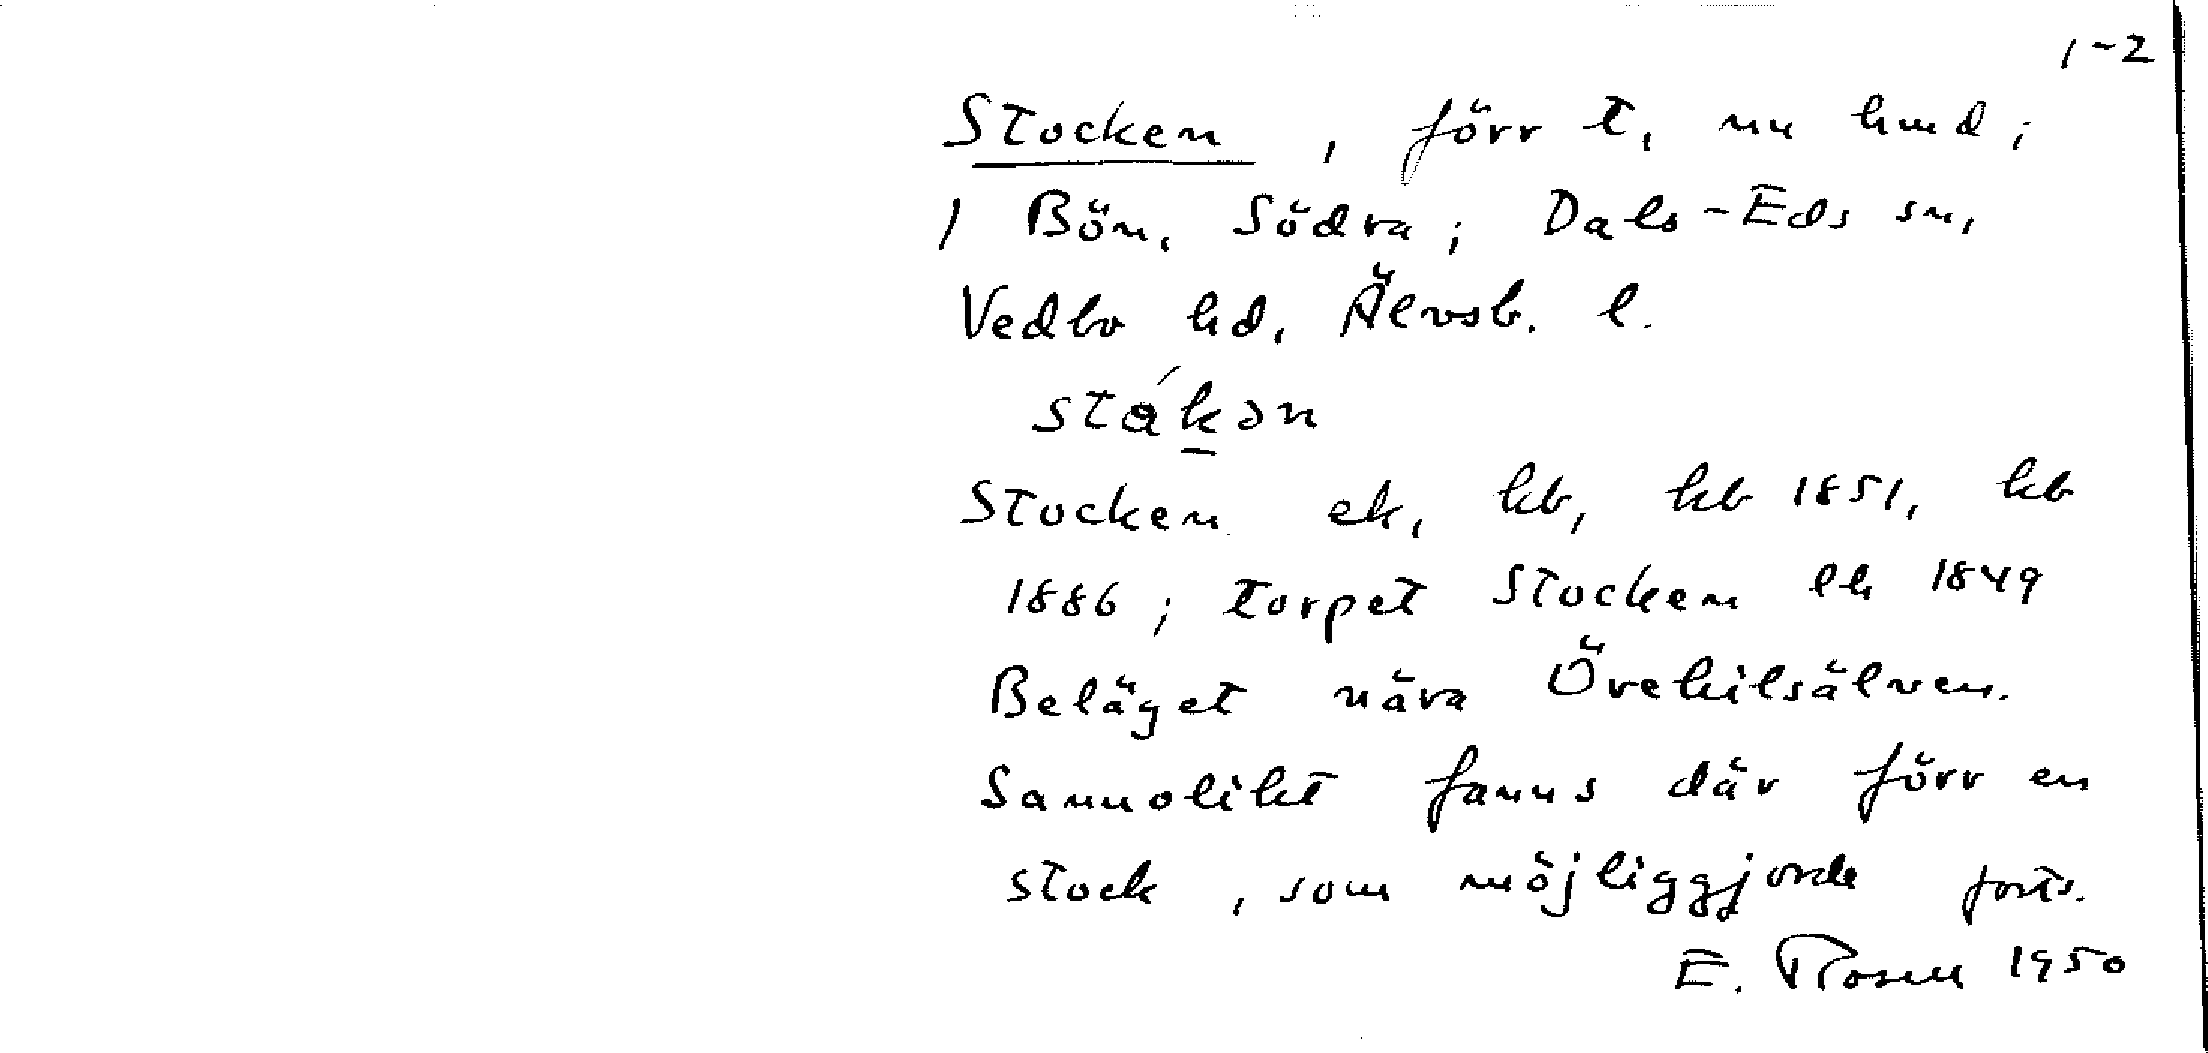 1-2
Stocken, förr t, nu hmd;
1 Bön, Södra; Dals-Eds sn,
Vedbo hd, Älvsb. l.
stákən
Stocken ek, kb, kb 1851, kb
1886; torpet Stocken lh 1849
Beläget nära Örekilsälven.
Sannolikt fanns där förr en
stock, som möjliggjorde forts.
E. Rosell 1950